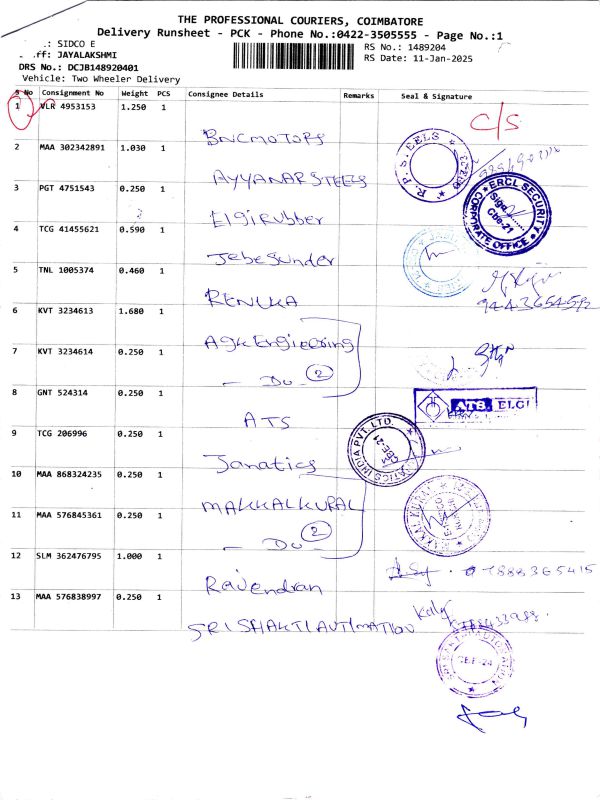 THE PROFESSIONAL COURIERS, COIMBATORE
Delivery Runsheet - PCK - Phone No.:0422-3505555 - Page No.:1
.: SIDCO E
ff: JAYALAKSHMI
DRS No.: DCJB148920401
Vehicle: Two Wheeler Delivery
RS No.: 1489204
RS Date: 11-Jan-2025
S No Consignment No Weight PCS Consignee Details Remarks Seal & Signature
1 VLR 4953153 1.250 1 C/S
BNCMOTORS
2 MAA 302342891 1.030 1 R.P.S. EELS
AYYANAR STEELS
3 PGT 4751543 0.250 1 ERCL SECURITY CORPORATE OFFICE Sign Cbe-21
Elgi Rubber
4 TCG 41455621 0.590 1
Jebesunder
5 TNL 1005374 0.460 1
RENUKA
6 KVT 3234613 1.680 1
Agk Engieering
7 KVT 3234614 0.250 1
- Do - 2
8 GNT 524314 0.250 1 ATS ELGI
ATS
9 TCG 206996 0.250 1 INDIA PVT. LTD.
Janatics
10 MAA 868324235 0.250 1
MAKKALKURAL
11 MAA 576845361 0.250 1
- Do - 2
12 SLM 362476795 1.000 1 7888365415
Ravendran
13 MAA 576838997 0.250 1
SRI SHAKTI AUTIMATION